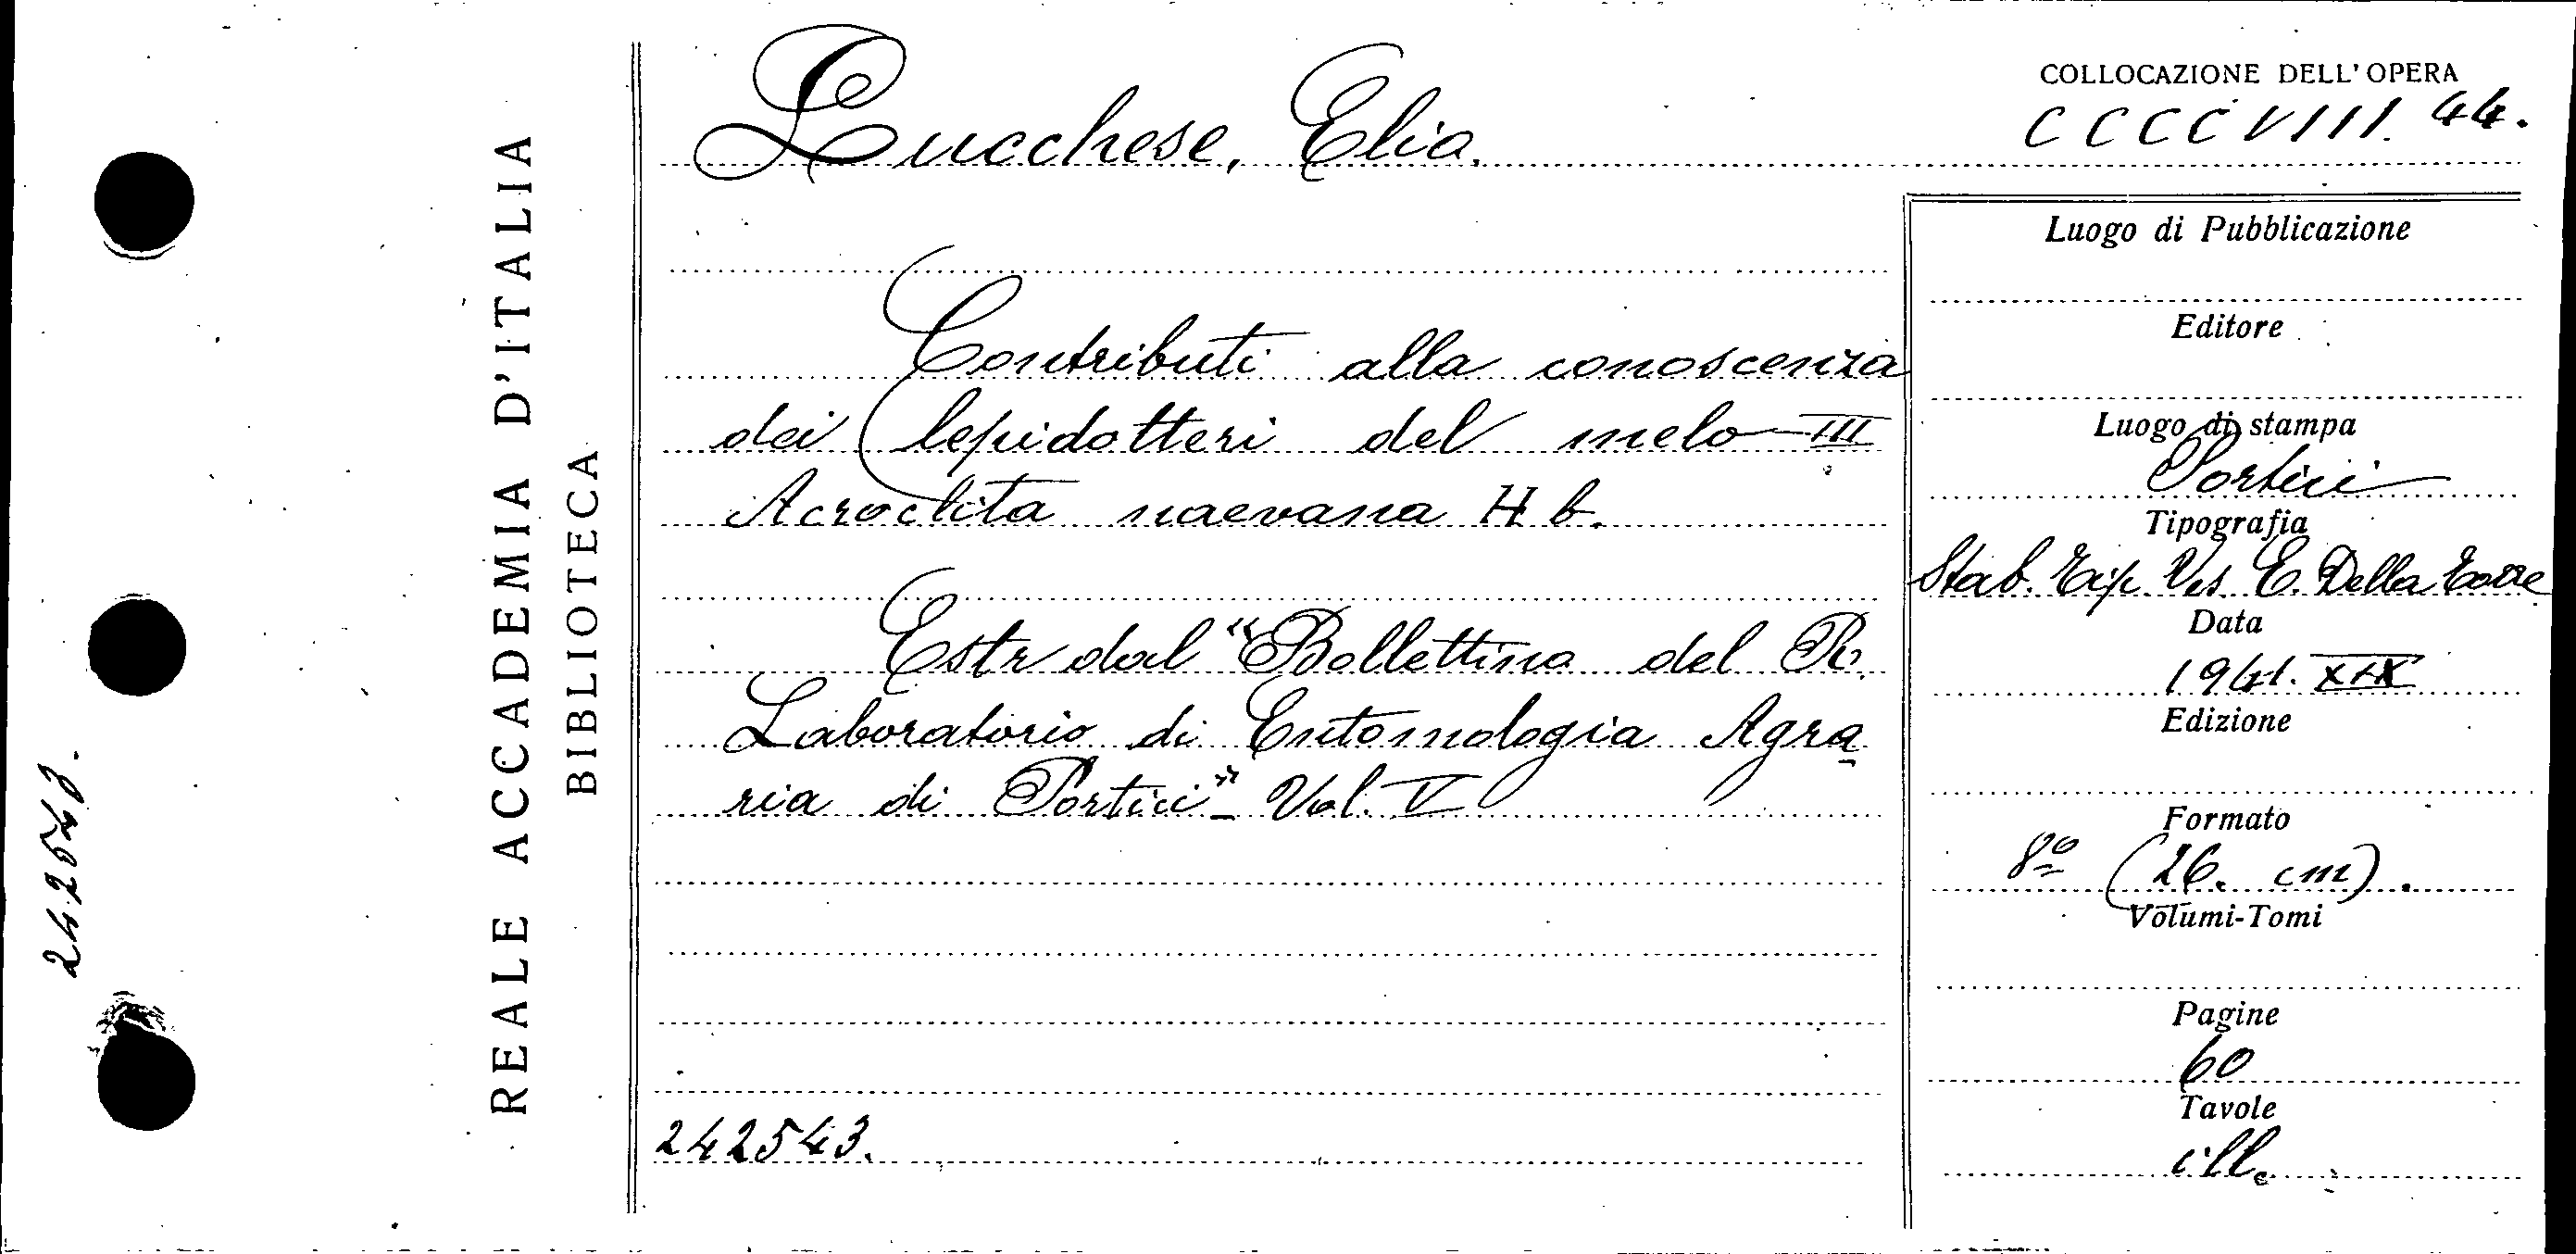 242543.
REALE ACCADEMIA D'ITALIA
BIBLIOTECA
Lucchese, Elia.
Contributi alla conoscenza
dei lepidotteri del melo III
Acroclita naevana Hb.
Estr dal "Bollettino del R.
Laboratorio di Entomologia Agra-
ria di Portici" - Vol. V
242543.
COLLOCAZIONE DELL'OPERA
CCCCVIII. 44.
Luogo di Pubblicazione
Editore
Luogo di stampa
Portici
Tipografia
Stab. Tip. Ves. E. Della Torre
Data
1941. XIX
Edizione
Formato
8º (26. cm).
Volumi-Tomi
Pagine
60
Tavole
ill.